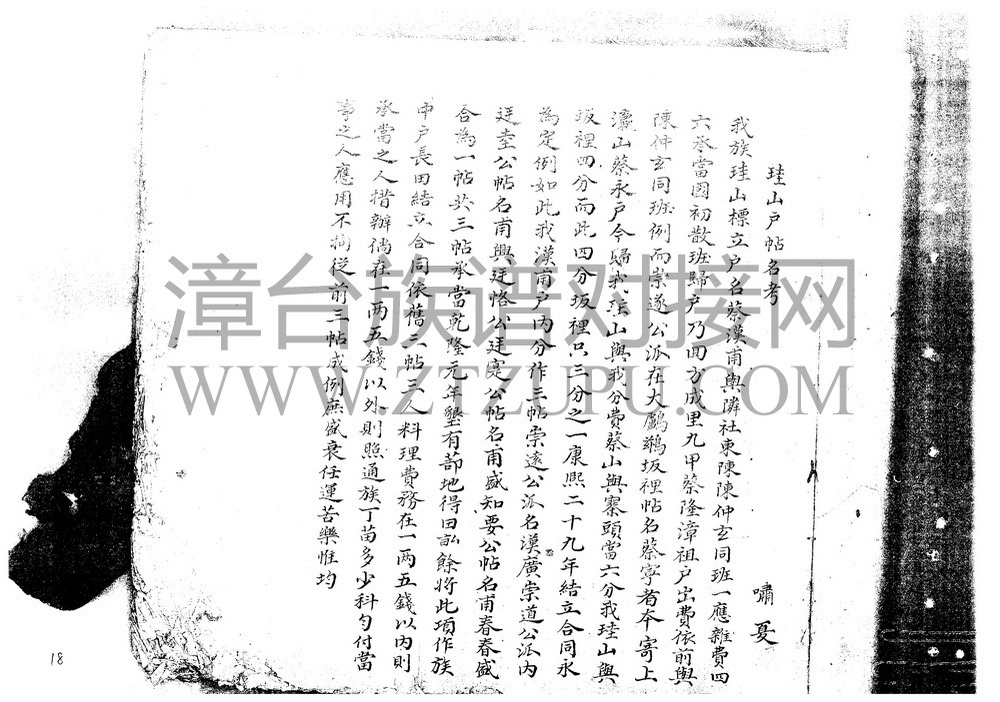 珪山戶帖名考
嘯夏
我族珪山標立戶名蔡漢甫與隣社東陳陳仲玄同班一應雜費四
六承當國初散班歸戶乃四方成里九甲蔡隆漳祖戶出費依前與
陳仲玄同班例而崇遂公派在大鸕鶿坂裡帖名蔡寧者本寄上
瀛山蔡永戶今歸我珪山與我分費蔡山與寨頭當六分我珪山與
坂裡四分而此四分坂裡只三分之一康熙二十九年結立合同永
為定例如此我漢甫戶內分作三帖崇遠公派名漢廣崇道公派內
廷奎公帖名甫興廷恪公廷寔公帖名甫盛知要公帖名甫春春盛
合為一帖共三帖承當乾隆元年墾有莭地得田畝餘將此項作族
中戶長田結立合同依舊三帖三人料理費務在一两五錢以内則
承當之人措辦倘在一两五錢以外則照通族丁苗多少科勻付當
事之人應用不拘從前三帖成例庶盛衰任運苦樂惟均
18
漳台族谱对接网
WWW.ZTZUPU.COM